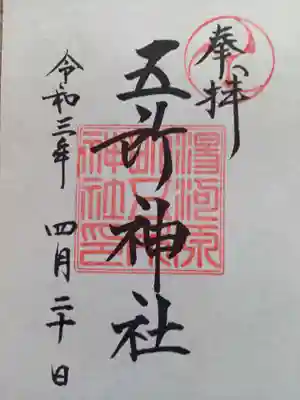 奉拝
五所神社
令和三年 四月二十日
湯河原
神社印